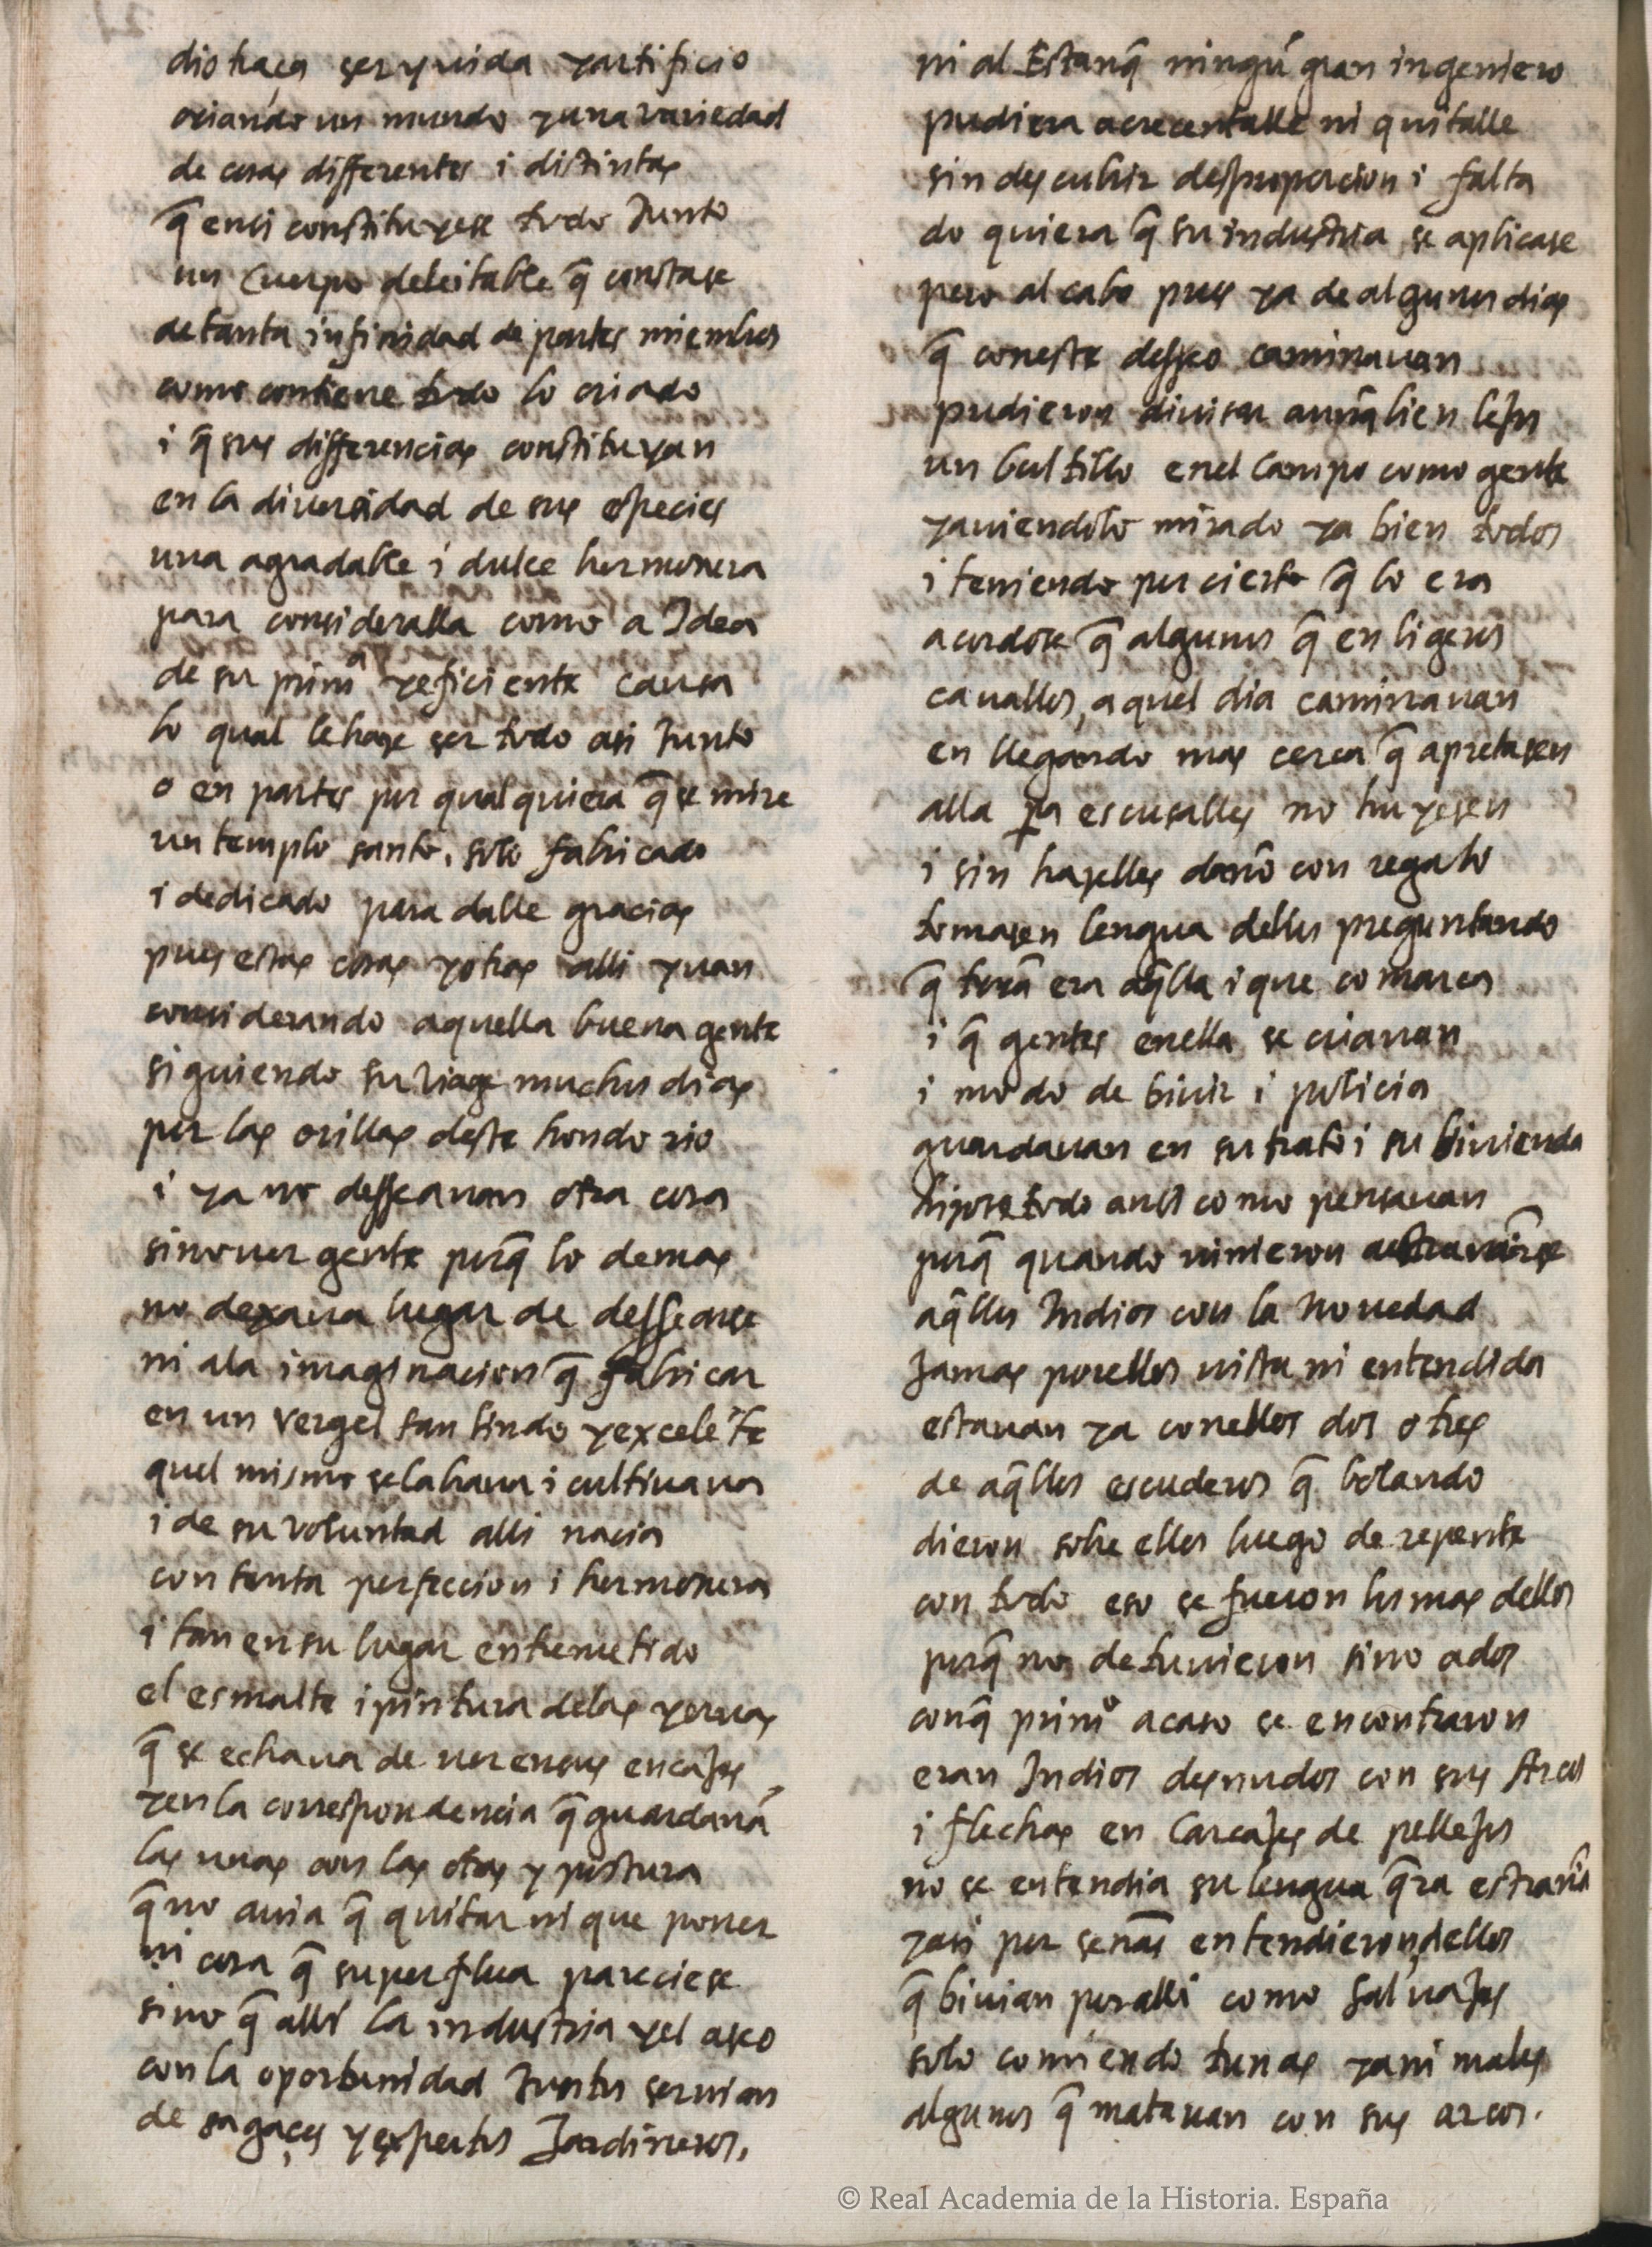 dio traça ser y vida y artificio
criando un mundo y una variedad
de cosas differentes i distintas
q̃ en si constituyese todo Junto
un Cuerpo deleitable q̃ constase
de tanta infinidad de partes miembros
como contiene todo lo criado
i q̃ sus differencias constituyan
en la diversidad de sus especies
una agradable i dulce hermosura
para consideralla como a Idea
de su primª y eficiente causa
lo qual le haze ser todo asi Junto
o en partes por qual quiera q̃ se mire
un templo santo, solo fabricado
i dedicado para dalle gracias
pues estas cosas y otras alli yuan
considerando aquella buena gente
siguiendo su viage muchos dias
por las orillas deste hondo rio
i ya no desseauan otra cosa
sino uer gente porq̃ lo demas
no dexaua lugar de dessearse
ni a la imaginacion q̃ fabricar
en un vergel tan lindo y excelẽte
quel mismo se labraua i cultiuaua
i de su voluntad alli nacia
con tanta perfeccion i hermosura
i tan en su lugar entremetido
el esmalte i pintura de las yeruas
q̃ se echaua de uer en sus encaJes
y en la correspondencia q̃ guardauã
las unas con las otras y postura
q̃ no auia q̃ quitar ni que poner
ni cosa q̃ superflua pareciese
sino q̃ alli la industria y el aseo
con la oportunidad Juntos seruian
de sagaçes y expertos Jardineros,
ni al Estanq̃ ningũ gran ingeniero
pudiera acrecentalle ni quitalle
sin descubrir desproporcion i falta
do quiera q̃ su industria se aplicase
pero al cabo pues ya de algunos dias
q̃ con este desseo caminauan
pudieron diuisar aunq̃ bien leJos
un bultillo en el Campo como gente
y auiendolo mirado ya bien todos
i teniendo por cierto q̃ lo era
acordose q̃ algunos q̃ en ligeros
cauallos, aquel dia caminauan
en llegando mas cerca q̃ apretasen
alla pa escusalles no huyesen
i sin hazelles daño con regalo
tomasen lengua dellos preguntando
q̃ tierã era aq̃lla i que comarca
i q̃ gentes en ella se criauan
i modo de biuir i policia
guardauan en su trato i su biuienda
hizose todo ansi como pensauan
porq̃ quando uinieron
aq̃llos Indios con la nouedad
Jamas por ellos uista ni entendida
estauan ya con ellos dos o tres
de aq̃llos escuderos q̃ bolando
dieron sobre ellos luego de repente
con todo eso se fueron los mas dellos
porq̃ no detuuieron sino a dos
con q̃ primº acaso se encontraron
eran Indios desnudos con sus Arcos
i flechas en CarcaJes de pelleJos
no se entendia su lengua q̃ra estraña
y asi por señas entendieron dellos
q̃ biuian por alli como SaluaJes
solo comiendo tunas y animales
algunos q̃ matauan con sus arcos.
© Real Academia de la Historia. España